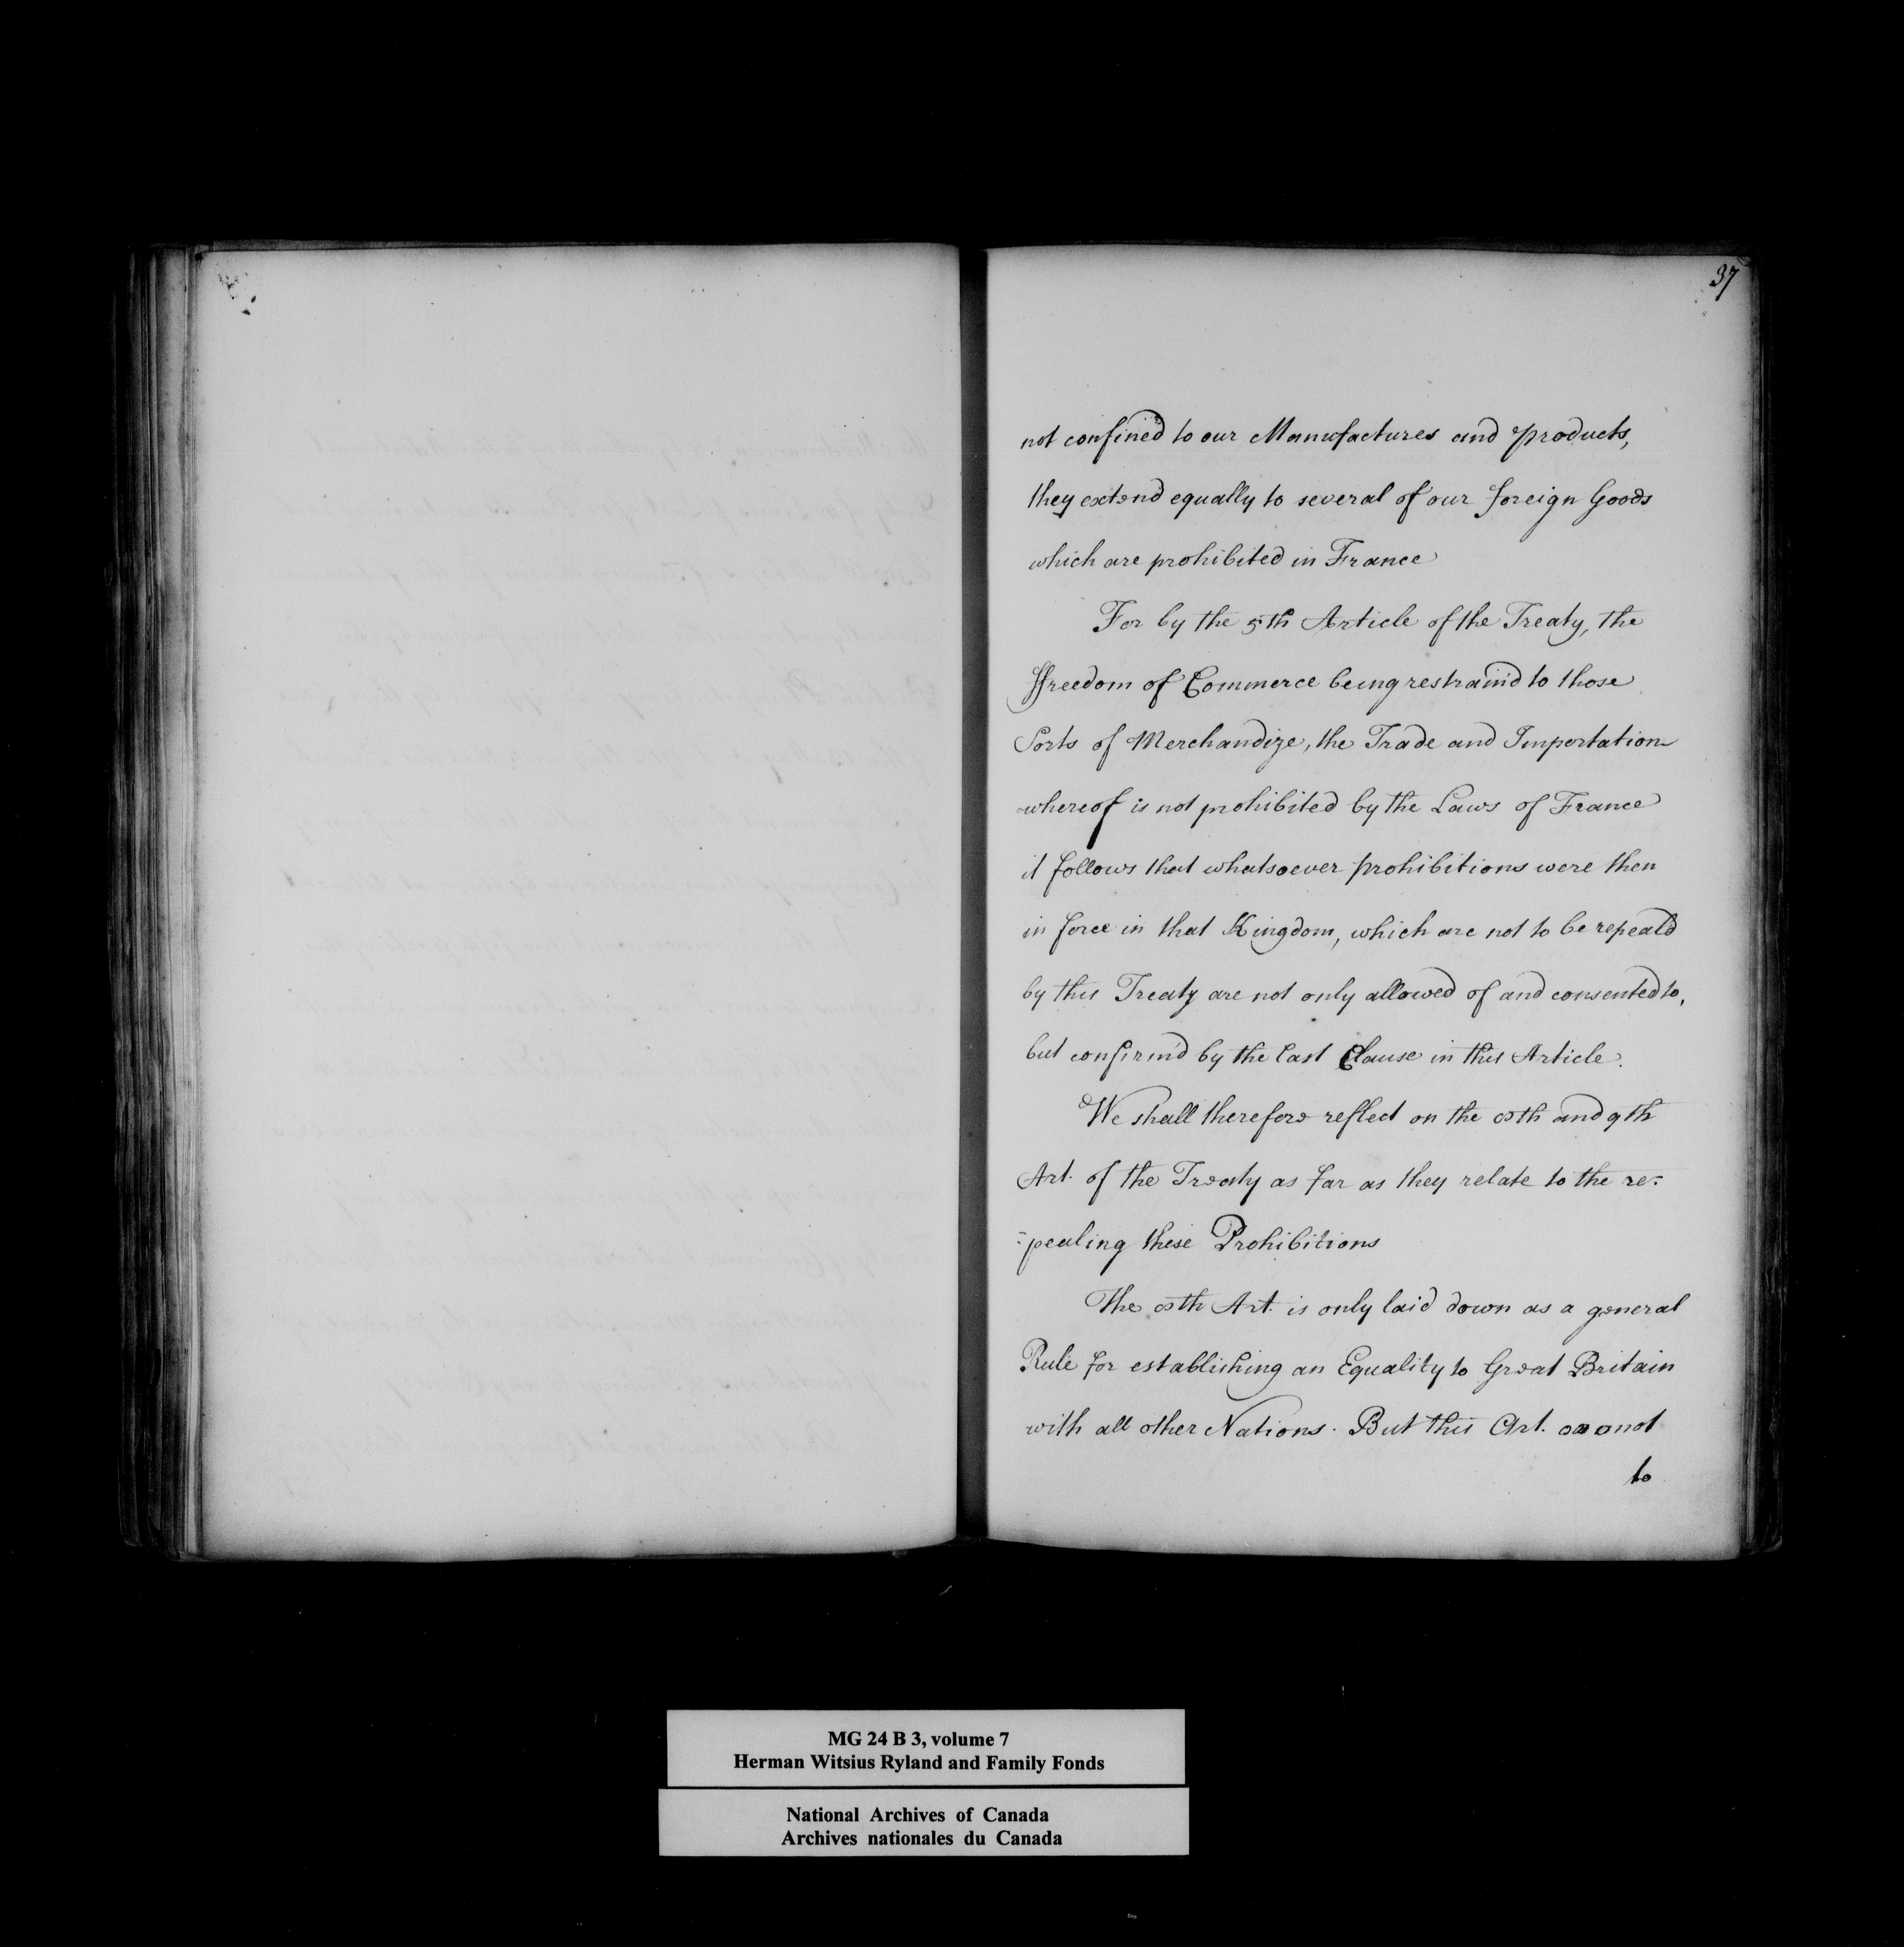 37
not confined to our Manufactures and products,
they extend equally to several of our foreign Goods
which are prohibited in France
For by the 5th Article of the Treaty, the
ffreedom of Commerce being restrain'd to those
Sorts of Merchandize, the Trade and Importation
whereof is not prohibited by the Laws of France
it follows that whatsoever prohibitions were then
in force in that Kingdom, which are not to be repeald
by this Treaty are not only allowed of and consented to,
but confirm'd by the last Clause in this Article.
We shall therefore reflect on the 8th and 9th
Art. of the Treaty as far as they relate to the re-
-pealing these Prohibitions
The 8th Art. is only laid down as a general
Rule for establishing an Equality to Great Britain
with all other Nations. But this Art. not
to
MG 24 B 3, volume 7
Herman Witsius Ryland and Family Fonds
National Archives of Canada
Archives nationales du Canada